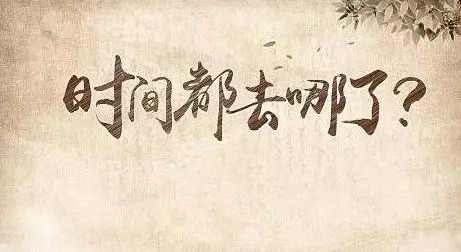 时间都去哪了?